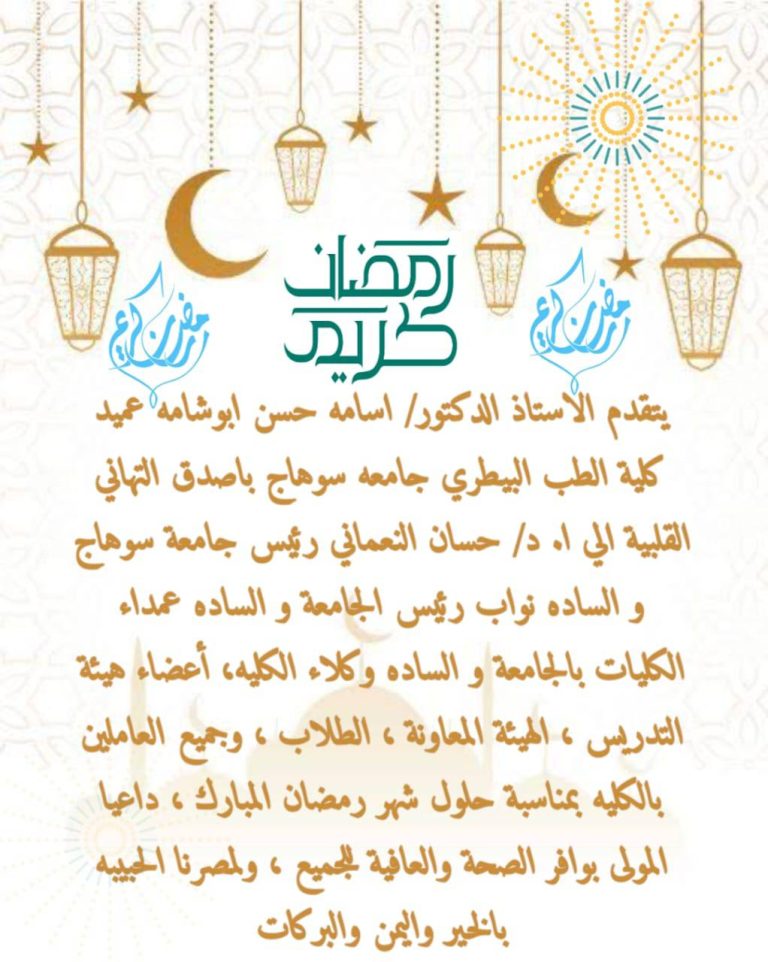 رمضان
كريم
رمضان كريم
رمضان كريم
يتقدم الاستاذ الدكتور/ اسامه حسن ابوشامه عميد
كلية الطب البيطري جامعه سوهاج باصدق التهاني
القلبية الي ا. د/ حسان النعماني رئيس جامعة سوهاج
و الساده نواب رئيس الجامعة و الساده عمداء
الكليات بالجامعة و الساده وكلاء الكليه، أعضاء هيئة
التدريس ، الهيئة المعاونة ، الطلاب ، وجميع العاملين
بالكليه بمناسبة حلول شهر رمضان المبارك ، داعيا
المولى بوافر الصحة والعافية للجميع ، ولمصرنا الحبيبه
بالخير واليمن والبركات